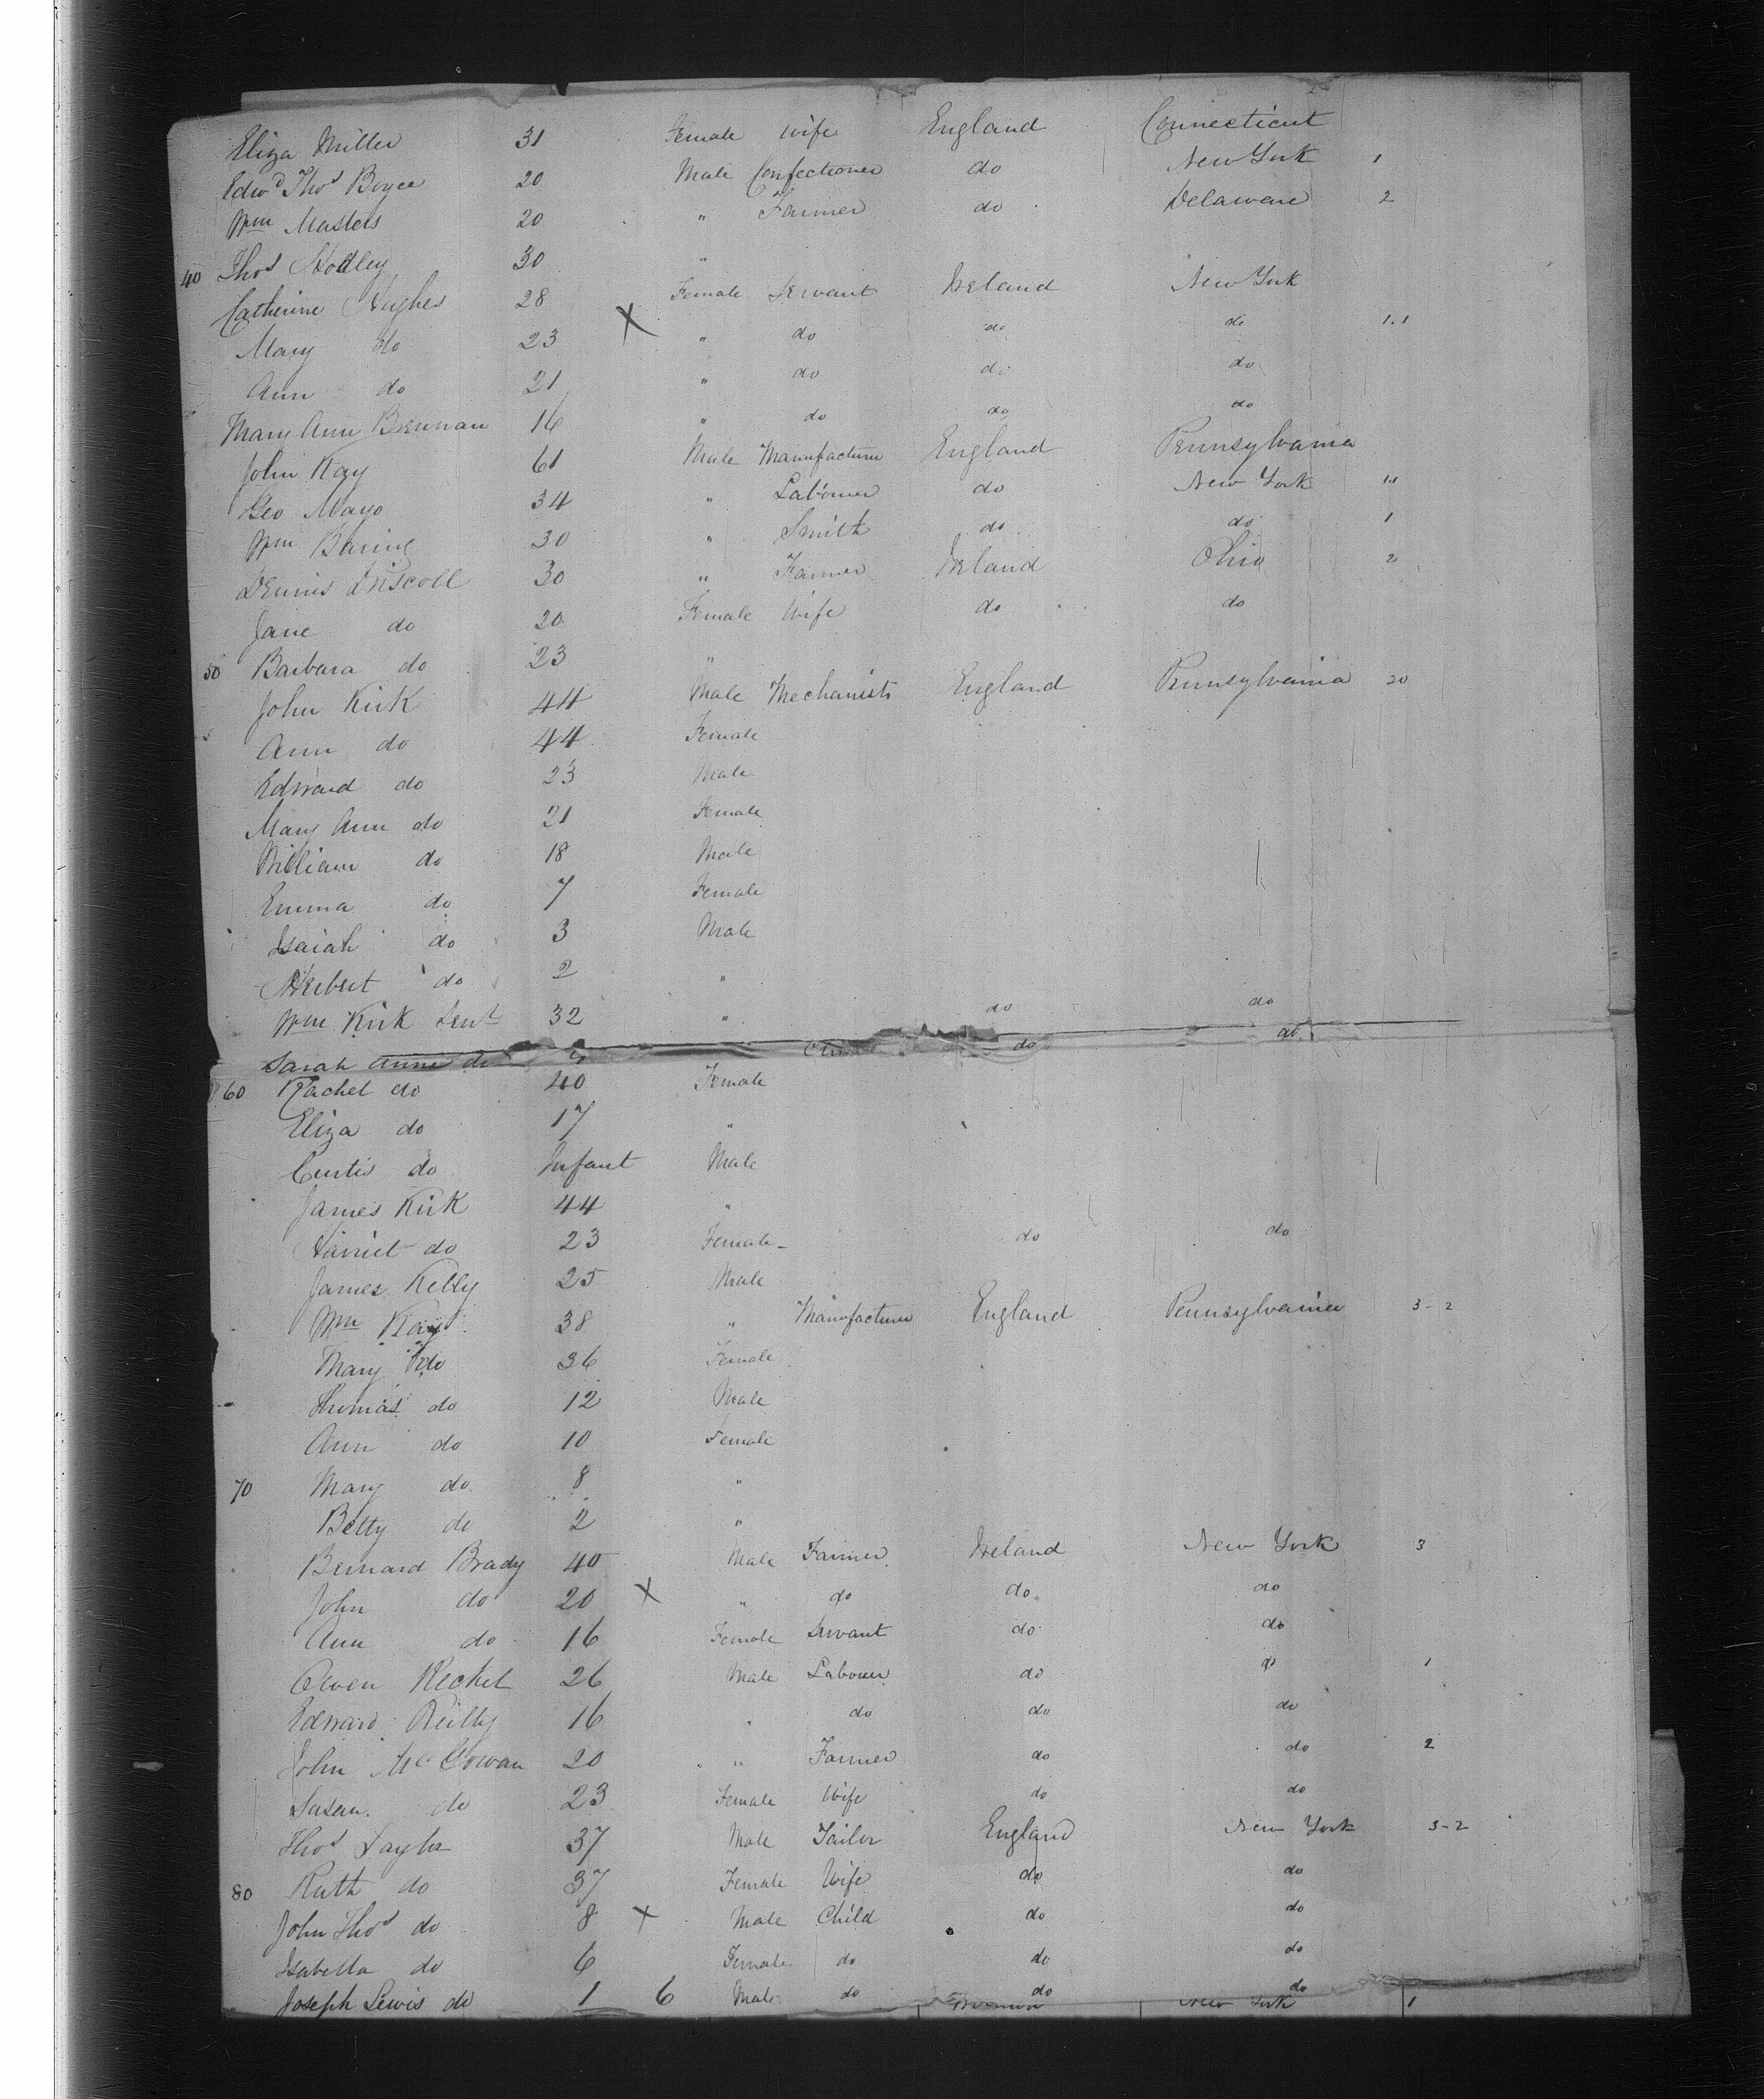 Eliza Miller 31 Female Wife England Connecticut
Edwd Thos Boyce 20 Male Confectioner do New York 1
Wm Masters 20 " Farmer do Delaware 2
40 Thos Hodley 30 "
Catherine Hughes 28 Female Servant Ireland New York
Mary do 23 X " do do do 1.1
Ann do 21 " do do do
Mary Ann Brennan 16 " do do do
John Kay 61 Male Manufacturer England Pennsylvania
Geo Mayo 34 " Labourer do New York 1.1
Wm Baring 30 " Smith do do 1
Dennis Driscoll 30 " Farmer Ireland Ohio 2
Jane do 20 Female Wife do do
50 Barbara do 23 "
John Kirk 44 Male Mechanists England Pennsylvania 20
Ann do 44 Female
Edward do 23 Male
Mary Ann do 21 Female
William do 18 Male
Emma do 7 Female
Isaiah do 3 Male
Herbert do 2 "
Wm Kirk Senr 32 " do do
Sarah Anne do " do do
60 Rachel do 40 Female
Eliza do 17 "
Curtis do Infant Male
James Kirk 44 "
Harriet do 23 Female do do
James Kelly 25 Male
Wm Kay 38 " Manufacturer England Pennsylvania 3-2
Mary do 36 Female
Thomas do 12 Male
Ann do 10 Female
70 Mary do 8 "
Betty do 2 "
Bernard Brady 40 Male Farmer Ireland New York 3
John do 20 X " do do do
Ann do 16 Female Servant do do
Owen 26 Male Labourer do do 1
Edward Reilly 16 " do do do
John McGowan 20 " Farmer do do 2
Susan do 23 Female Wife do do
Thos Taylor 37 Male Tailor England New York 3-2
80 Ruth do 37 Female Wife do do
John Thos do 8 X Male Child do do
Isabella do 6 Female do do do
Joseph Lewis do 1 6 Male do do do
New York 1